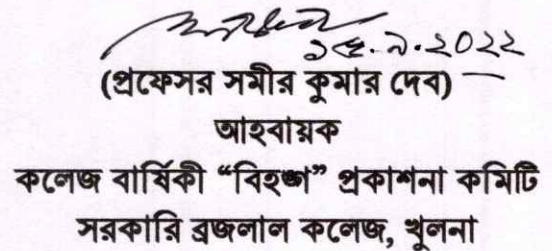 (প্রফেসর সমীর কুমার দেব)
আহবায়ক
কলেজ বার্ষিকী “বিহঙ্গ” প্রকাশনা কমিটি
সরকারি ব্রজলাল কলেজ, খুলনা